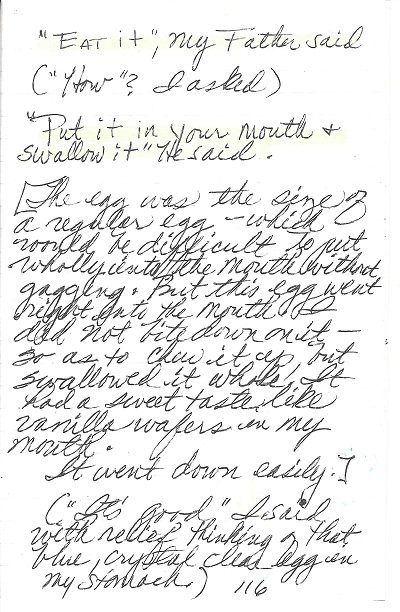 "EAT it", my Father said
("How"? I asked)
"Put it in your mouth +
swallow it" He said.
[The egg was the size of
a regular egg - which
would be difficult to put
wholly into the mouth without
gagging. But this egg went
right into the mouth I
did not bite down on it -
so as to chew it up, but
swallowed it whole. It
had a sweet taste like
vanilla wafers in my
mouth.
It went down easily.]
("It's good" I said
with relief thinking of that
blue, crystal clear egg in
my stomach.) 116